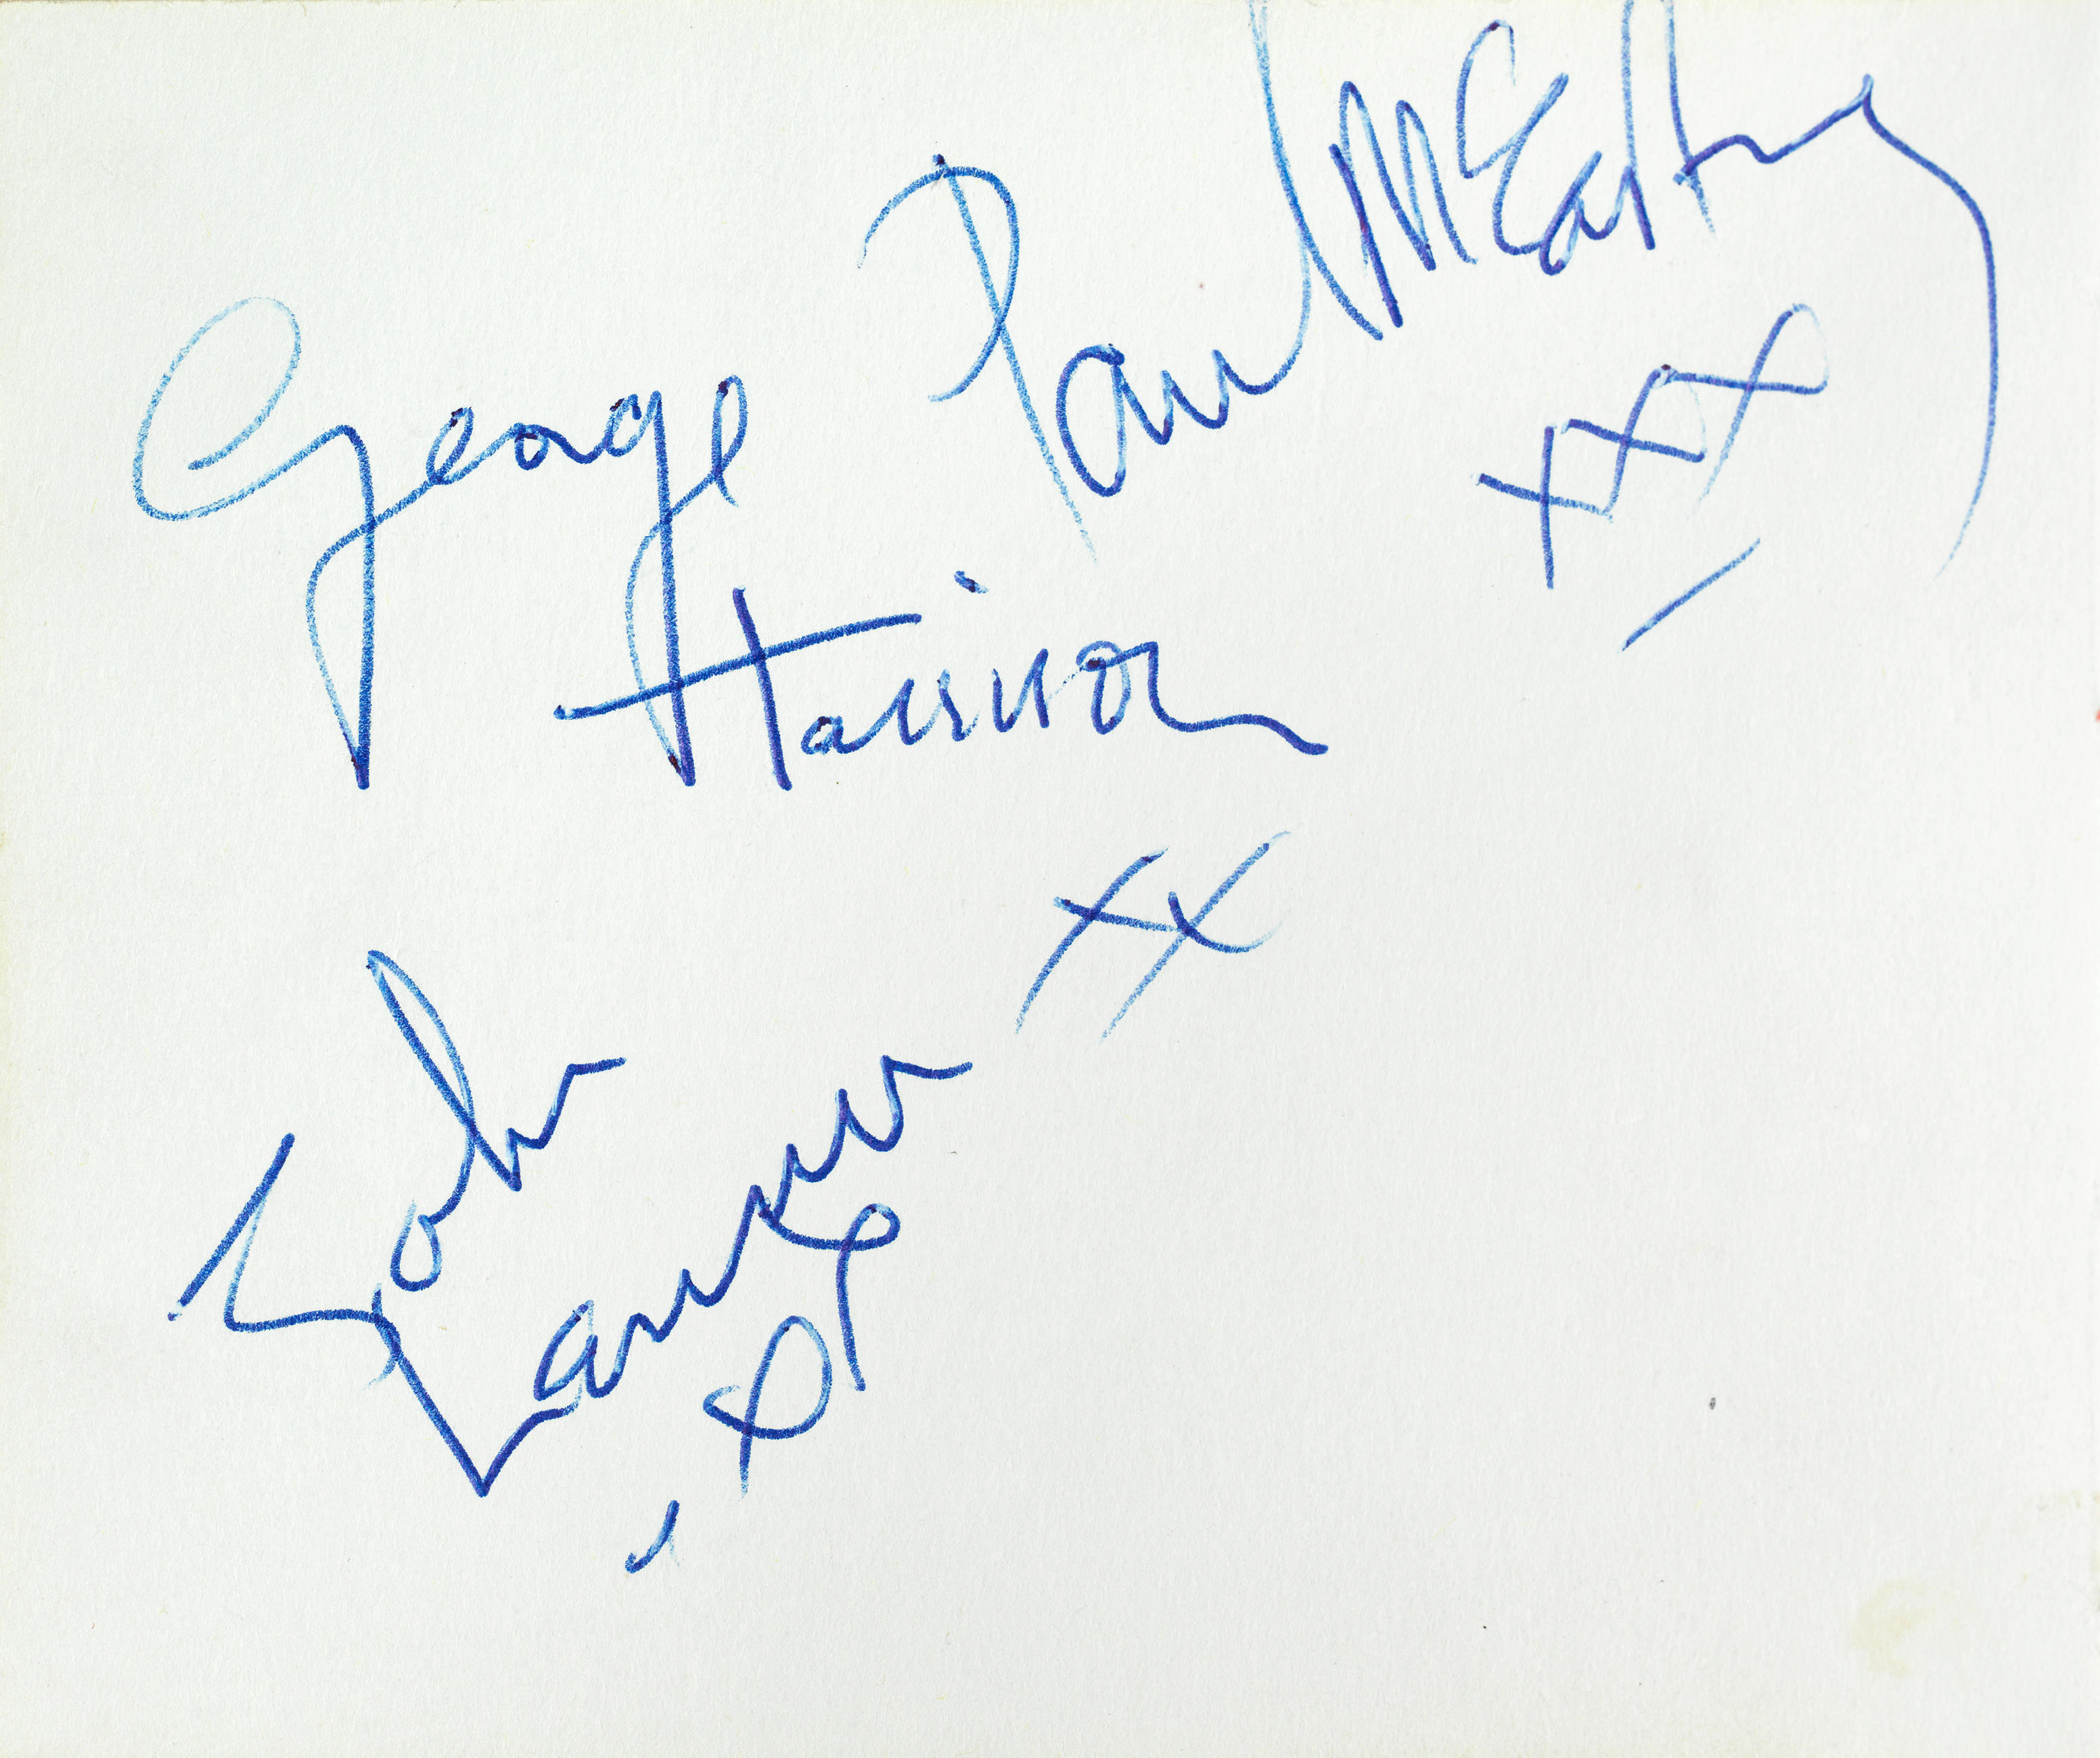 Paul McCartney
xxx
George
Harrison
xx
John
Lennon
xx